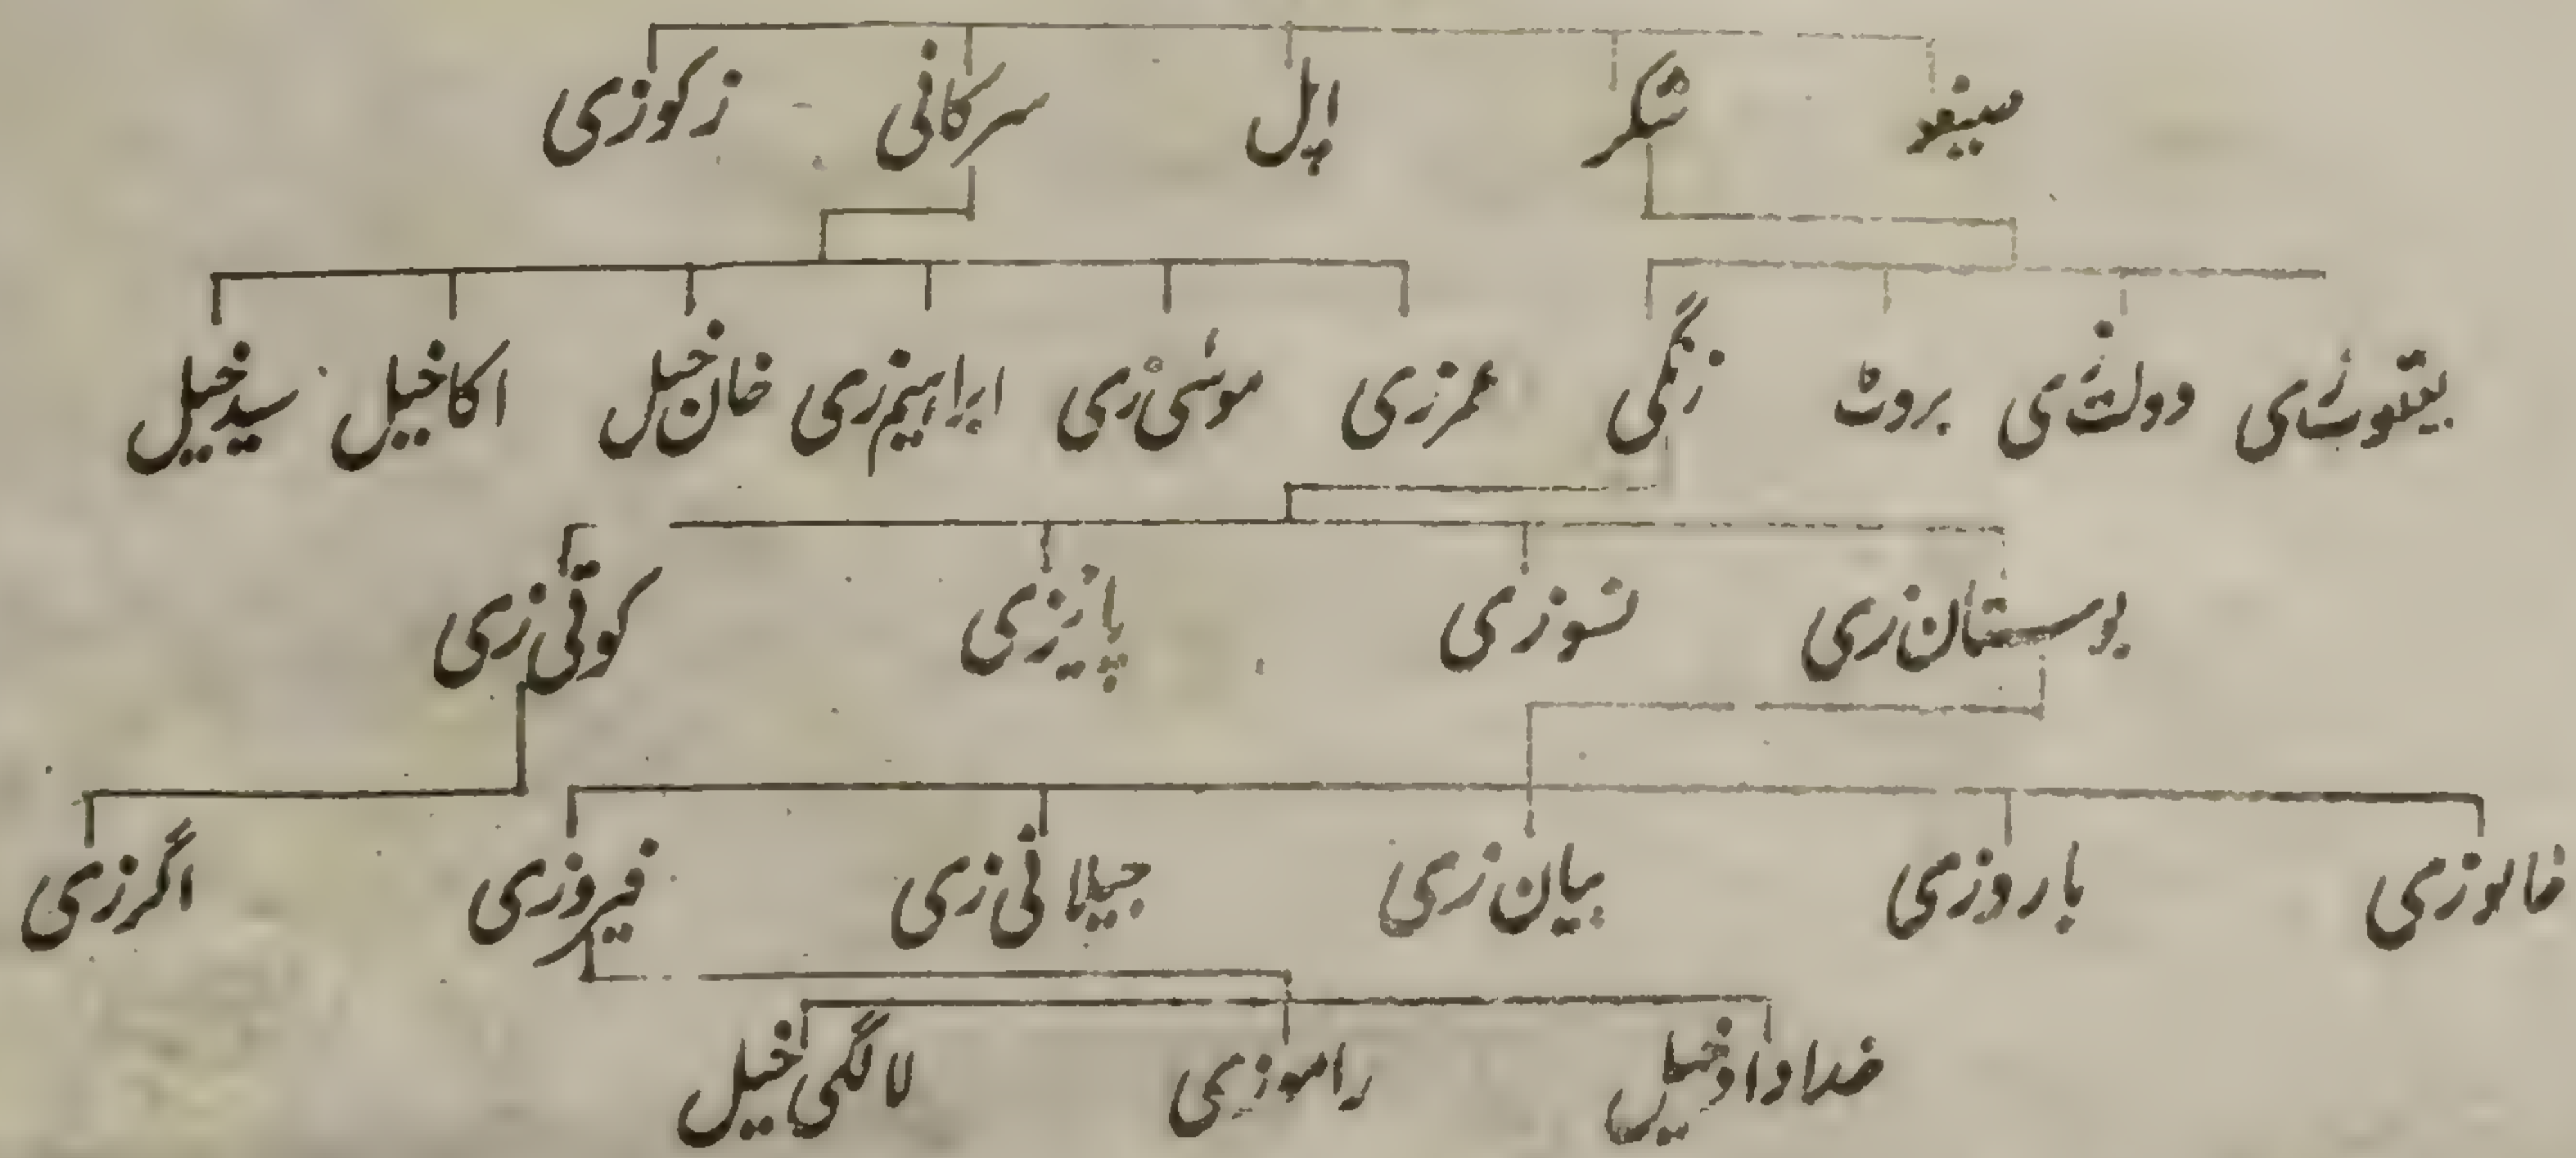 شکر اپل سرکانی زکوزی
بروٹ زنگی عمرزی موسٰی زی ابراہیم زی خان خیل اکاخیل سیدخیل
بوستان زی نسوزی پائیزی کوتی زی
بارוزی بیان زی جیلانی زی فیروزی اگرزی
خدادادخیل راموزی لالگی خیل